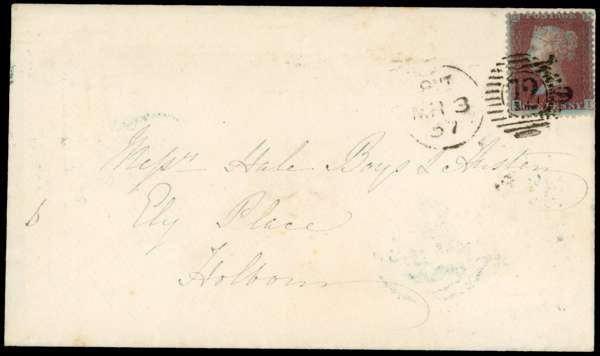 POSTAGE
CHT
MR 3
57
Messrs Hale Boys & Austen
Ely Place
Holborn